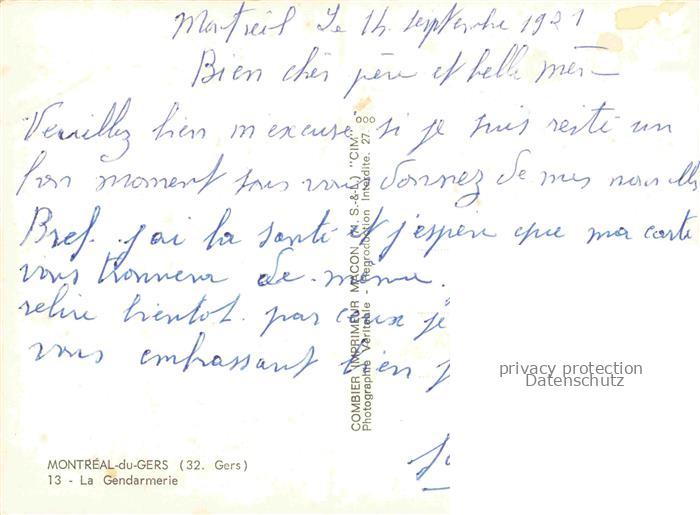 Montreil Le 14 septembre 1981
Bien cher père et belle mère
Veuillez bien m'excuse si je suis resté un
bon moment sans vous donnez de mes nouvelles
Bref. j'ai la santé et j'espère que ma carte
vous trouvera de même.
relire bientot. par ceux je
vous embrassant bien
COMBIER IMPRIMEUR MACON (S.-&-L.) "CIM"
Photographie Véritable - Reproduction Interdite. 27
privacy protection
Datenschutz
MONTRÉAL-du-GERS (32. Gers)
13 - La Gendarmerie